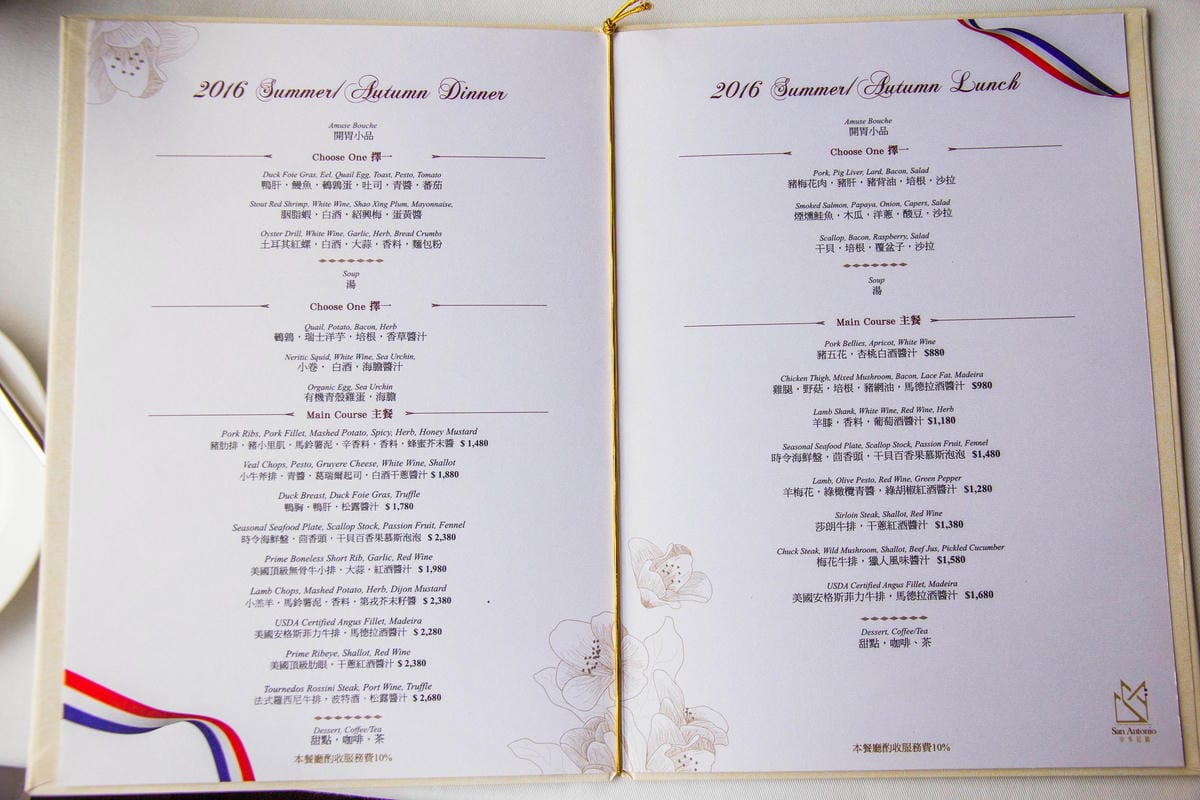 2016 Summer/Autumn Dinner
Amuse Bouche
開胃小品
Choose One 擇一
Duck Foie Gras, Eel, Quail Egg, Toast, Pesto, Tomato
鴨肝，鰻魚，鵪鶉蛋，吐司，青醬，蕃茄
Stout Red Shrimp, White Wine, Shao Xing Plum, Mayonnaise,
胭脂蝦，白酒，紹興梅，蛋黃醬
Oyster Drill, White Wine, Garlic, Herb, Bread Crumbs
土耳其紅螺，白酒，大蒜，香料，麵包粉
Soup
湯
Choose One 擇一
Quail, Potato, Bacon, Herb
鵪鶉，瑞士洋芋，培根，香草醬汁
Neritic Squid, White Wine, Sea Urchin,
小卷， 白酒，海膽醬汁
Organic Egg, Sea Urchin
有機青殼雞蛋，海膽
Main Course 主餐
Pork Ribs, Pork Fillet, Mashed Potato, Spicy, Herb, Honey Mustard
豬肋排，豬小里肌，馬鈴薯泥，辛香料，香料，蜂蜜芥末醬 $ 1,480
Veal Chops, Pesto, Gruyere Cheese, White Wine, Shallot
小牛斧排，青醬，葛瑞爾起司，白酒干蔥醬汁 $ 1,880
Duck Breast, Duck Foie Gras, Truffle
鴨胸，鴨肝，松露醬汁 $ 1,780
Seasonal Seafood Plate, Scallop Stock, Passion Fruit, Fennel
時令海鮮盤，茴香頭，干貝百香果慕斯泡泡 $ 2,380
Prime Boneless Short Rib, Garlic, Red Wine
美國頂級無骨牛小排，大蒜，紅酒醬汁 $ 1,980
Lamb Chops, Mashed Potato, Herb, Dijon Mustard
小羔羊，馬鈴薯泥，香料，第戎芥末籽醬 $ 2,380
USDA Certified Angus Fillet, Madeira
美國安格斯菲力牛排，馬德拉酒醬汁 $ 2,280
Prime Ribeye, Shallot, Red Wine
美國頂級肋眼，干蔥紅酒醬汁 $ 2,380
Tournedos Rossini Steak, Port Wine, Truffle
法式羅西尼牛排，波特酒，松露醬汁 $ 2,680
Dessert, Coffee/Tea
甜點，咖啡、茶
本餐廳酌收服務費10%
2016 Summer/Autumn Lunch
Amuse Bouche
開胃小品
Choose One 擇一
Pork, Pig Liver, Lard, Bacon, Salad
豬梅花肉，豬肝，豬背油，培根，沙拉
Smoked Salmon, Papaya, Onion, Capers, Salad
煙燻鮭魚，木瓜，洋蔥，酸豆，沙拉
Scallop, Bacon, Raspberry, Salad
干貝，培根，覆盆子，沙拉
Soup
湯
Main Course 主餐
Pork Bellies, Apricot, White Wine
豬五花，杏桃白酒醬汁 $880
Chicken Thigh, Mixed Mushroom, Bacon, Lace Fat, Madeira
雞腿，野菇，培根，豬網油，馬德拉酒醬汁 $980
Lamb Shank, White Wine, Red Wine, Herb
羊膝，香料，葡萄酒醬汁 $1,180
Seasonal Seafood Plate, Scallop Stock, Passion Fruit, Fennel
時令海鮮盤，茴香頭，干貝百香果慕斯泡泡 $1,480
Lamb, Olive Pesto, Red Wine, Green Pepper
羊梅花，綠橄欖青醬，綠胡椒紅酒醬汁 $1,280
Sirloin Steak, Shallot, Red Wine
莎朗牛排，干蔥紅酒醬汁 $1,380
Chuck Steak, Wild Mushroom, Shallot, Beef Jus, Pickled Cucumber
梅花牛排，獵人風味醬汁 $1,580
USDA Certified Angus Fillet, Madeira
美國安格斯菲力牛排，馬德拉酒醬汁 $1,680
Dessert, Coffee/Tea
甜點，咖啡、茶
本餐廳酌收服務費10%
San Antonio